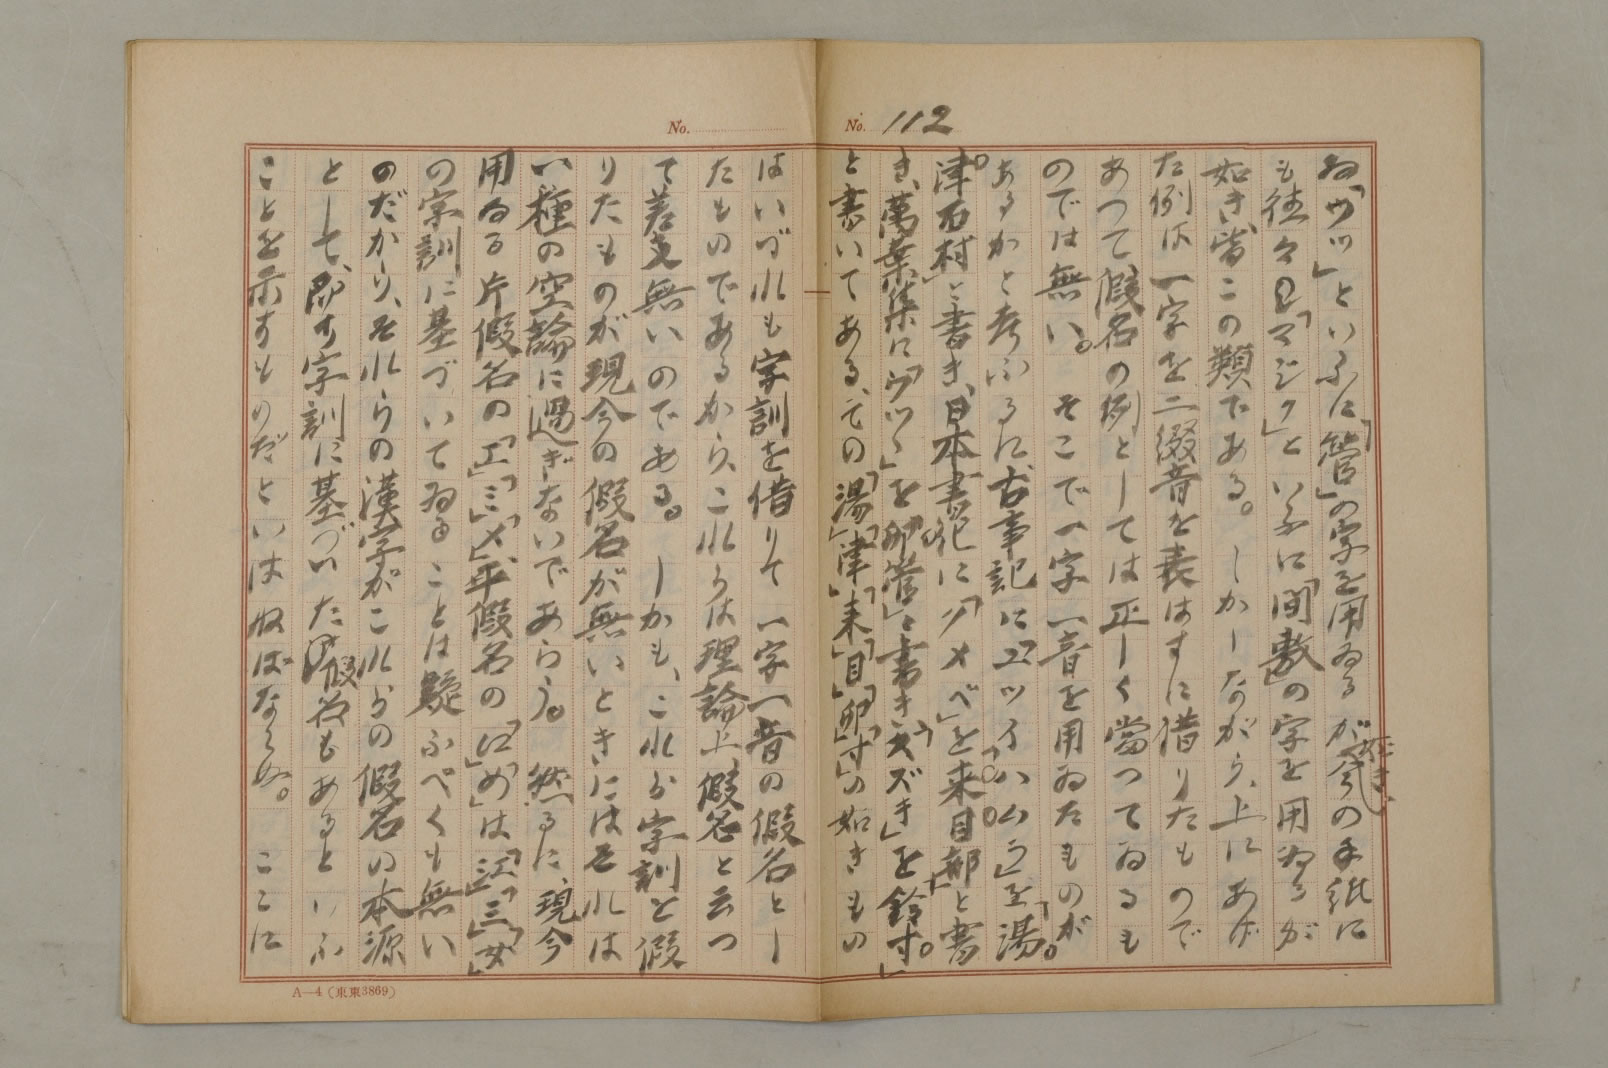 No. 112
ゐ「ウツ」といふに「管」の字を用ゐるが如き、今の手紙に
も往々見「マジク」といふに「間敷」の字を用ゐるが
如き、皆この類である。しかしながら、上にあげ
た例は一字を二綴音を表はすに借りたもので
あつて、假名の例としては正しく當つてゐるも
のでは無い。そこで一字一音を用ゐたものが
あるかと考ふるに、古事記に「ユツイハムラ」を「湯
津石村」と書き、日本書紀に「クメベ」を「来目部」と書
き、萬葉集に「ウツヽ」を「卯管」と書き「スズキ」を「鈴寸」
と書いてある、その「湯」「津」「来」「目」「卯」「寸」の如きもの
はいづれも字訓を借りて一字一音の假名とし
たものであるから、これらは理論上、假名と云つ
て差支無いのである。しかも、これら字訓を假
りたものが現今の假名が無いときにはそれは
い種の空論に過ぎないであらう。然るに、現今
用ゐる片假名の「エ」「ミ」「メ」、平假名の「江」「め」は「江」「三」「女」
の字訓に基づいてゐることは疑ふべくも無い
のだから、それらの漢字がこれらの假名の本源
として、即す字訓に基づいた假名もあるといふ
ことを示すものだといはねばならぬ。ここに
No.
A—4(東東3869)